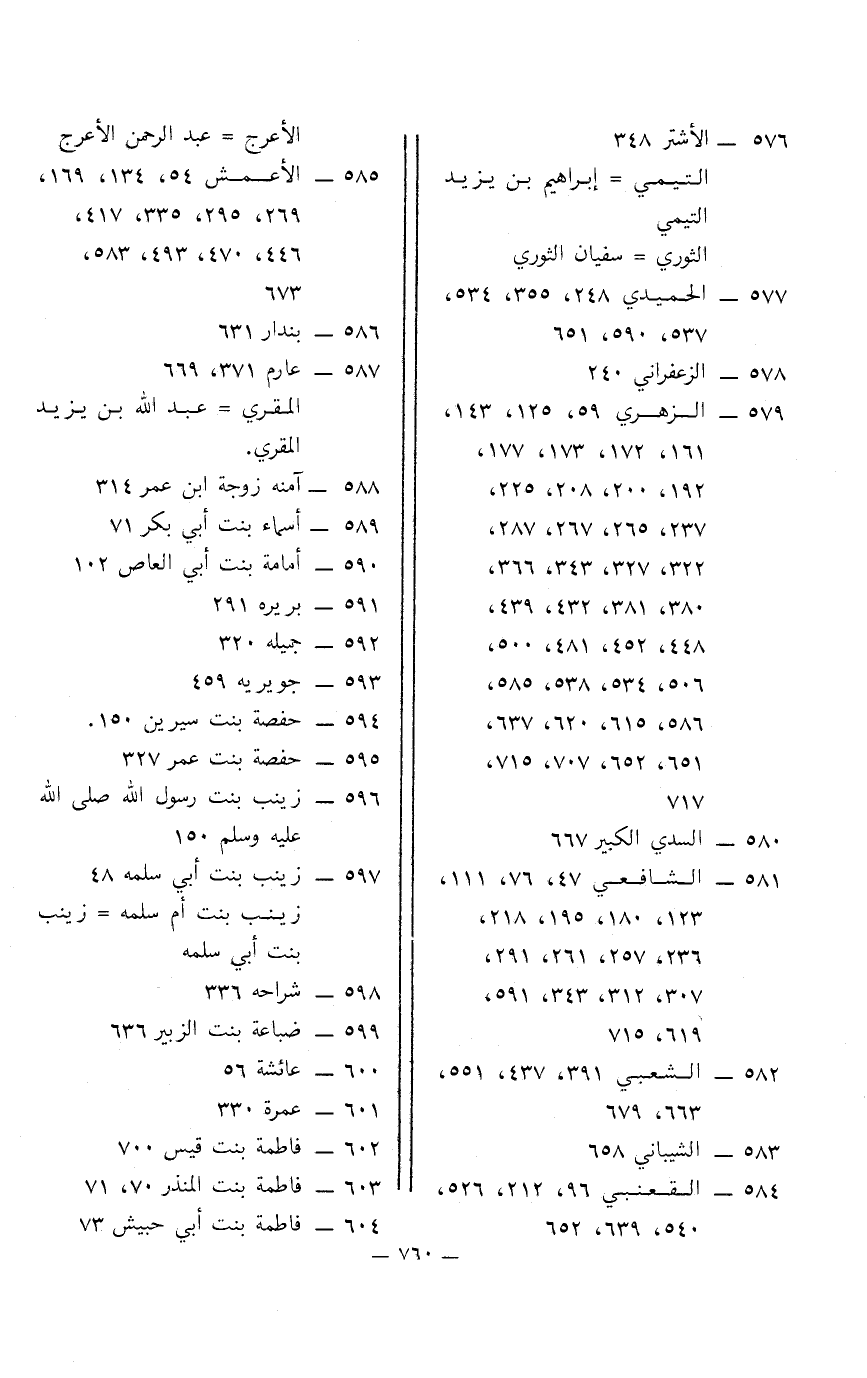 ٥٧٦ ــ الأشتر ٣٤٨
التيمي = إبراهيم بن يزيد
التيمي
الثوري = سفيان الثوري
٥٧٧ ــ الحميدي ٢٤٨، ٣٥٥، ٥٣٤،
٥٣٧، ٥٩٠، ٦٥١
٥٧٨ ــ الزعفراني ٢٤٠
٥٧٩ ــ الزهري ٥٩، ١٢٥، ١٤٣،
١٦١، ١٧٢، ١٧٣، ١٧٧،
١٩٢، ٢٠٠، ٢٠٨، ٢٢٥،
٢٣٧، ٢٦٥، ٢٦٧، ٢٨٧،
٣٢٢، ٣٢٧، ٣٤٣، ٣٦٦،
٣٨٠، ٣٨١، ٤٣٢، ٤٣٩،
٤٤٨، ٤٥٢، ٤٨١، ٥٠٠،
٥٠٦، ٥٣٤، ٥٣٨، ٥٨٥،
٥٨٦، ٦١٥، ٦٢٠، ٦٣٧،
٦٥١، ٦٥٢، ٧٠٧، ٧١٥،
٧١٧
٥٨٠ ــ السدي الكبير ٦٦٧
٥٨١ ــ الشافعي ٤٧، ٧٦، ١١١،
١٢٣، ١٨٠، ١٩٥، ٢١٨،
٢٣٦، ٢٥٧، ٢٦١، ٢٩١،
٣٠٧، ٣١٢، ٣٤٣، ٥٩١،
٦١٩، ٧١٥
٥٨٢ ــ الشعبي ٣٩١، ٤٣٧، ٥٥١،
٦٦٣، ٦٧٩
٥٨٣ ــ الشيباني ٦٥٨
٥٨٤ ــ القعنبي ٩٦، ٢١٢، ٥٢٦،
٥٤٠، ٦٣٩، ٦٥٢
الأعرج = عبد الرحمن الأعرج
٥٨٥ ــ الأعمش ٥٤، ١٣٤، ١٦٩،
٢٦٩، ٢٩٥، ٣٣٥، ٤١٧،
٤٤٦، ٤٧٠، ٤٩٣، ٥٨٣،
٦٧٣
٥٨٦ ــ بندار ٦٣١
٥٨٧ ــ عارم ٣٧١، ٦٦٩
المقري = عبد الله بن يزيد
المقري.
٥٨٨ ــ آمنه زوجة ابن عمر ٣١٤
٥٨٩ ــ أسماء بنت أبي بكر ٧١
٥٩٠ ــ أمامة بنت أبي العاص ١٠٢
٥٩١ ــ بريره ٢٩١
٥٩٢ ــ جميله ٣٢٠
٥٩٣ ــ جويريه ٤٥٩
٥٩٤ ــ حفصة بنت سيرين ١٥٠.
٥٩٥ ــ حفصة بنت عمر ٣٢٧
٥٩٦ ــ زينب بنت رسول الله صلى الله
عليه وسلم ١٥٠
٥٩٧ ــ زينب بنت أبي سلمه ٤٨
زينب بنت أم سلمه = زينب
بنت أبي سلمه
٥٩٨ ــ شراحه ٣٣٦
٥٩٩ ــ ضباعة بنت الزبير ٦٣٦
٦٠٠ ــ عائشة ٥٦
٦٠١ ــ عمرة ٣٣٠
٦٠٢ ــ فاطمة بنت قيس ٧٠٠
٦٠٣ ــ فاطمة بنت المنذر ٧٠، ٧١
٦٠٤ ــ فاطمة بنت أبي حبيش ٧٣
ــ ٧٦٠ ــ